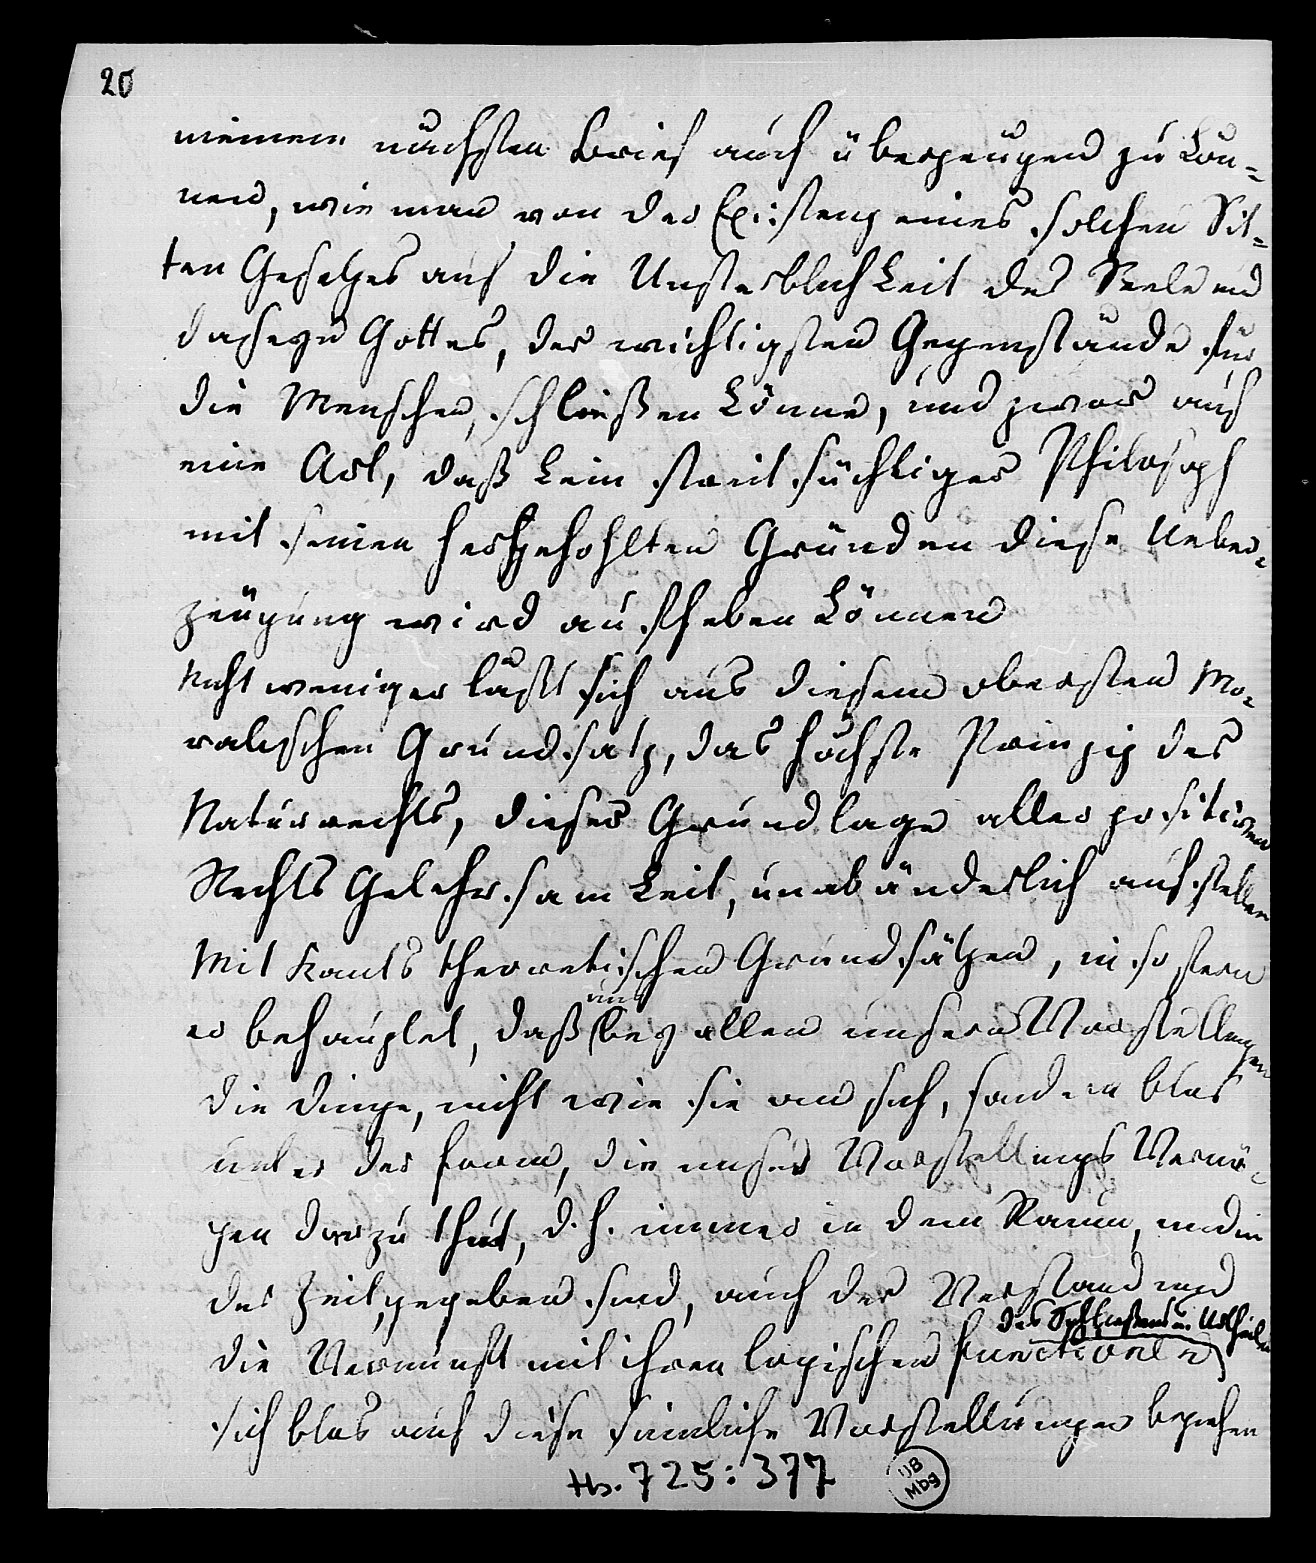 20
meinem nächsten Brief auch überzeugend zu kön=
nen, wie man von der Existenz eines solchen Sit=
ten Gesetzes auf die Unsterblichkeit der Seele und
daseyn Gottes, der wichtigsten Gegenstände für
die Menschen, schließen könne, und zwar auf
eine Art, daß kein streitsüchtiger Philosoph
mit seinen hergehohlten Gründen diese Ueber=
zeugung wird aufheben können
Nicht weniger läßt sich aus diesem obersten Mo=
ralischen Grundsatz, das höchste Prinzip des
Naturrechts, dieser Grundlage aller positiven
Rechts Gelehrsamkeit, unabänderlich aufstellen
Mit Kants theoretischen Grundsätzen, in so fern
er behauptet, daß uns bey allen unsern Vorstellungen
die Dinge, nicht wie sie an sich, sondern blos
unter der Form, die unser Vorstellungs Vermö=
gen darzu thut, d. h. immer in dem Raum, und in
der Zeit, gegeben sind, auch der Verstand und
des Schließens u. Urtheilens
die Vernunft mit ihren logischen Functionen
sich blos auf diese sinnliche Vorstellungen beziehen
Hs. 725: 377
UB
Mbg